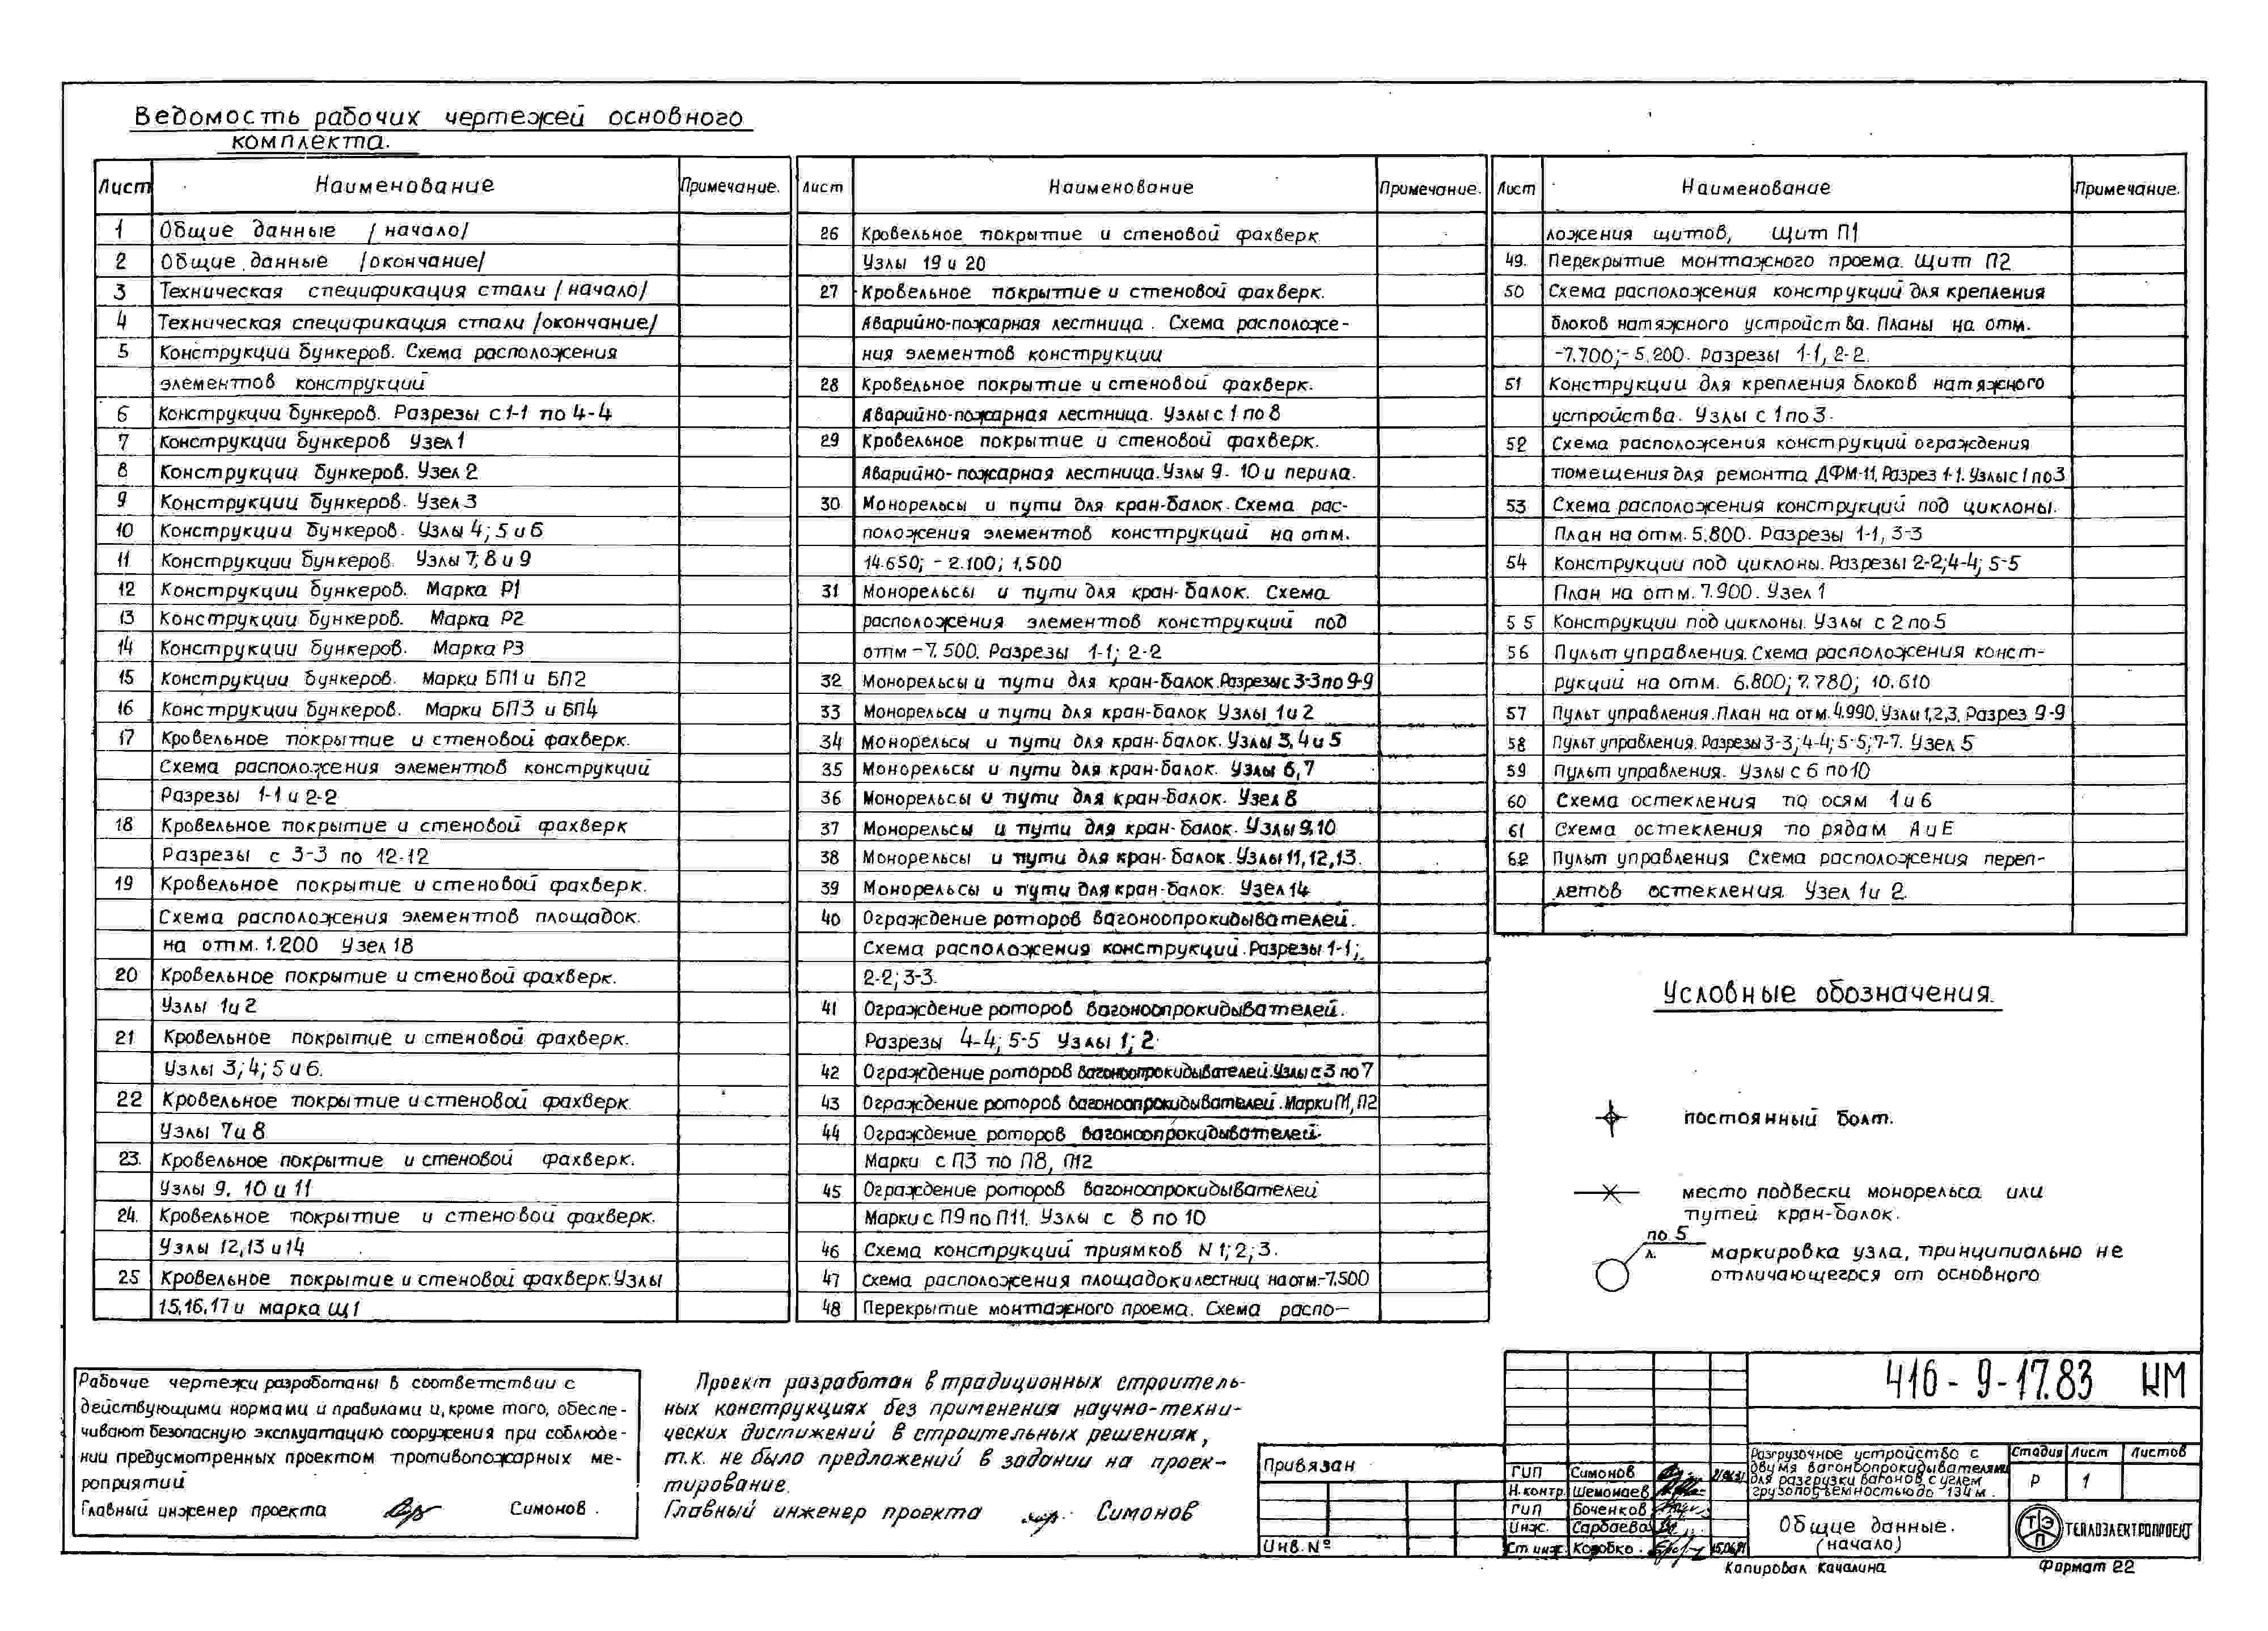 Ведомость рабочих чертежей основного
комплекта.
Лист Наименование Примечание.
1 Общие данные /начало/
2 Общие данные /окончание/
3 Техническая спецификация стали /начало/
4 Техническая спецификация стали /окончание/
5 Конструкции бункеров. Схема расположения
элементов конструкций
6 Конструкции бункеров. Разрезы с 1-1 по 4-4
7 Конструкции бункеров Узел 1
8 Конструкции бункеров. Узел 2
9 Конструкции бункеров. Узел 3
10 Конструкции бункеров. Узлы 4; 5 и 6
11 Конструкции бункеров. Узлы 7; 8 и 9
12 Конструкции бункеров. Марка Р1
13 Конструкции бункеров. Марка Р2
14 Конструкции бункеров. Марка Р3
15 Конструкции бункеров. Марки БП1 и БП2
16 Конструкции бункеров. Марки БП3 и БП4
17 Кровельное покрытие и стеновой фахверк.
Схема расположения элементов конструкций
Разрезы 1-1 и 2-2
18 Кровельное покрытие и стеновой фахверк
Разрезы с 3-3 по 12-12
19 Кровельное покрытие и стеновой фахверк.
Схема расположения элементов площадок.
на отм. 1.200 Узел 18
20 Кровельное покрытие и стеновой фахверк.
Узлы 1 и 2
21 Кровельное покрытие и стеновой фахверк.
Узлы 3; 4; 5 и 6.
22 Кровельное покрытие и стеновой фахверк.
Узлы 7 и 8
23. Кровельное покрытие и стеновой фахверк.
Узлы 9, 10 и 11
24. Кровельное покрытие и стеновой фахверк.
Узлы 12,13 и 14
25 Кровельное покрытие и стеновой фахверк. Узлы
15,16,17 и марка Щ1
Лист Наименование Примечание.
26 Кровельное покрытие и стеновой фахверк
Узлы 19 и 20
27 Кровельное покрытие и стеновой фахверк.
Аварийно-пожарная лестница. Схема расположе-
ния элементов конструкции
28 Кровельное покрытие и стеновой фахверк.
Аварийно-пожарная лестница. Узлы с 1 по 8
29 Кровельное покрытие и стеновой фахверк.
Аварийно-пожарная лестница. Узлы 9- 10 и перила.
30 Монорельсы и пути для кран-балок. Схема рас-
положения элементов конструкций на отм.
14.650; -2.100; 1.500
31 Монорельсы и пути для кран-балок. Схема
расположения элементов конструкций под
отм -7.500. Разрезы 1-1; 2-2
32 Монорельсы и пути для кран-балок. Разрезы с 3-3 по 9-9
33 Монорельсы и пути для кран-балок Узлы 1 и 2
34 Монорельсы и пути для кран-балок. Узлы 3, 4 и 5
35 Монорельсы и пути для кран-балок. Узлы 6,7
36 Монорельсы и пути для кран-балок. Узел 8
37 Монорельсы и пути для кран-балок. Узлы 9,10
38 Монорельсы и пути для кран-балок. Узлы 11,12,13.
39 Монорельсы и пути для кран-балок. Узел 14
40 Ограждение роторов вагоноопрокидывателей.
Схема расположения конструкций. Разрезы 1-1;
2-2; 3-3.
41 Ограждение роторов вагоноопрокидывателей.
Разрезы 4-4; 5-5 Узлы 1; 2
42 Ограждение роторов вагоноопрокидывателей. Узлы с 3 по 7
43 Ограждение роторов вагоноопрокидывателей. Марки П1, П2
44 Ограждение роторов вагоноопрокидывателей.
Марки с П3 по П8, П12
45 Ограждение роторов вагоноопрокидывателей
Марки с П9 по П11. Узлы с 8 по 10
46 Схема конструкций приямков N 1; 2; 3.
47 Схема расположения площадок и лестниц на отм.-7.500
48 Перекрытие монтажного проема. Схема распо-
Лист Наименование Примечание.
ложения щитов, Щит П1
49. Перекрытие монтажного проема. Щит П2
50 Схема расположения конструкций для крепления
блоков натяжного устройства. Планы на отм.
-7.700; -5.200. Разрезы 1-1, 2-2.
51 Конструкции для крепления блоков натяжного
устройства. Узлы с 1 по 3.
52 Схема расположения конструкций ограждения
помещения для ремонта ДФМ-11. Разрез 1-1. Узлы с 1 по 3
53 Схема расположения конструкций под циклоны.
План на отм. 5.800. Разрезы 1-1, 3-3
54 Конструкции под циклоны. Разрезы 2-2; 4-4; 5-5
План на отм. 7.900. Узел 1
55 Конструкции под циклоны. Узлы с 2 по 5
56 Пульт управления. Схема расположения конст-
рукций на отм. 6.800; 7.780; 10.610
57 Пульт управления. План на отм. 4.990. Узлы 1,2,3. Разрез 9-9
58 Пульт управления. Разрезы 3-3; 4-4; 5-5; 7-7. Узел 5
59 Пульт управления. Узлы с 6 по 10
60 Схема остекления по осям 1 и 6
61 Схема остекления по рядам А и Е
62 Пульт управления Схема расположения переп-
летов остекления. Узел 1 и 2.
Условные обозначения.
постоянный болт.
место подвески монорельса или
путей кран-балок.
по 5
л.
маркировка узла, принципиально не
отличающегося от основного
Рабочие чертежи разработаны в соответствии с
действующими нормами и правилами и, кроме того, обеспе-
чивают безопасную эксплуатацию сооружения при соблюде-
нии предусмотренных проектом противопожарных ме-
роприятий
Главный инженер проекта Симонов.
Проект разработан в традиционных строитель-
ных конструкциях без применения научно-техни-
ческих достижений в строительных решениях,
т.к. не было предложений в задании на проек-
тирование.
Главный инженер проекта Симонов
Привязан
Инв. №
416-9-17.83 КМ
ГИП Симонов
Н.контр. Шемонаев
ГИП Боченков
Инж. Сарбаева
Ст инж. Коробко.
Разгрузочное устройство с
двумя вагоноопрокидывателями
для разгрузки вагонов с углем
грузоподъемностью до 134 м.
Стадия Лист Листов
Р 1
Общие данные.
(начало)
ТЭП
ТЕПЛОЭЛЕКТРОПРОЕКТ
Копировал Качалина
Формат 22